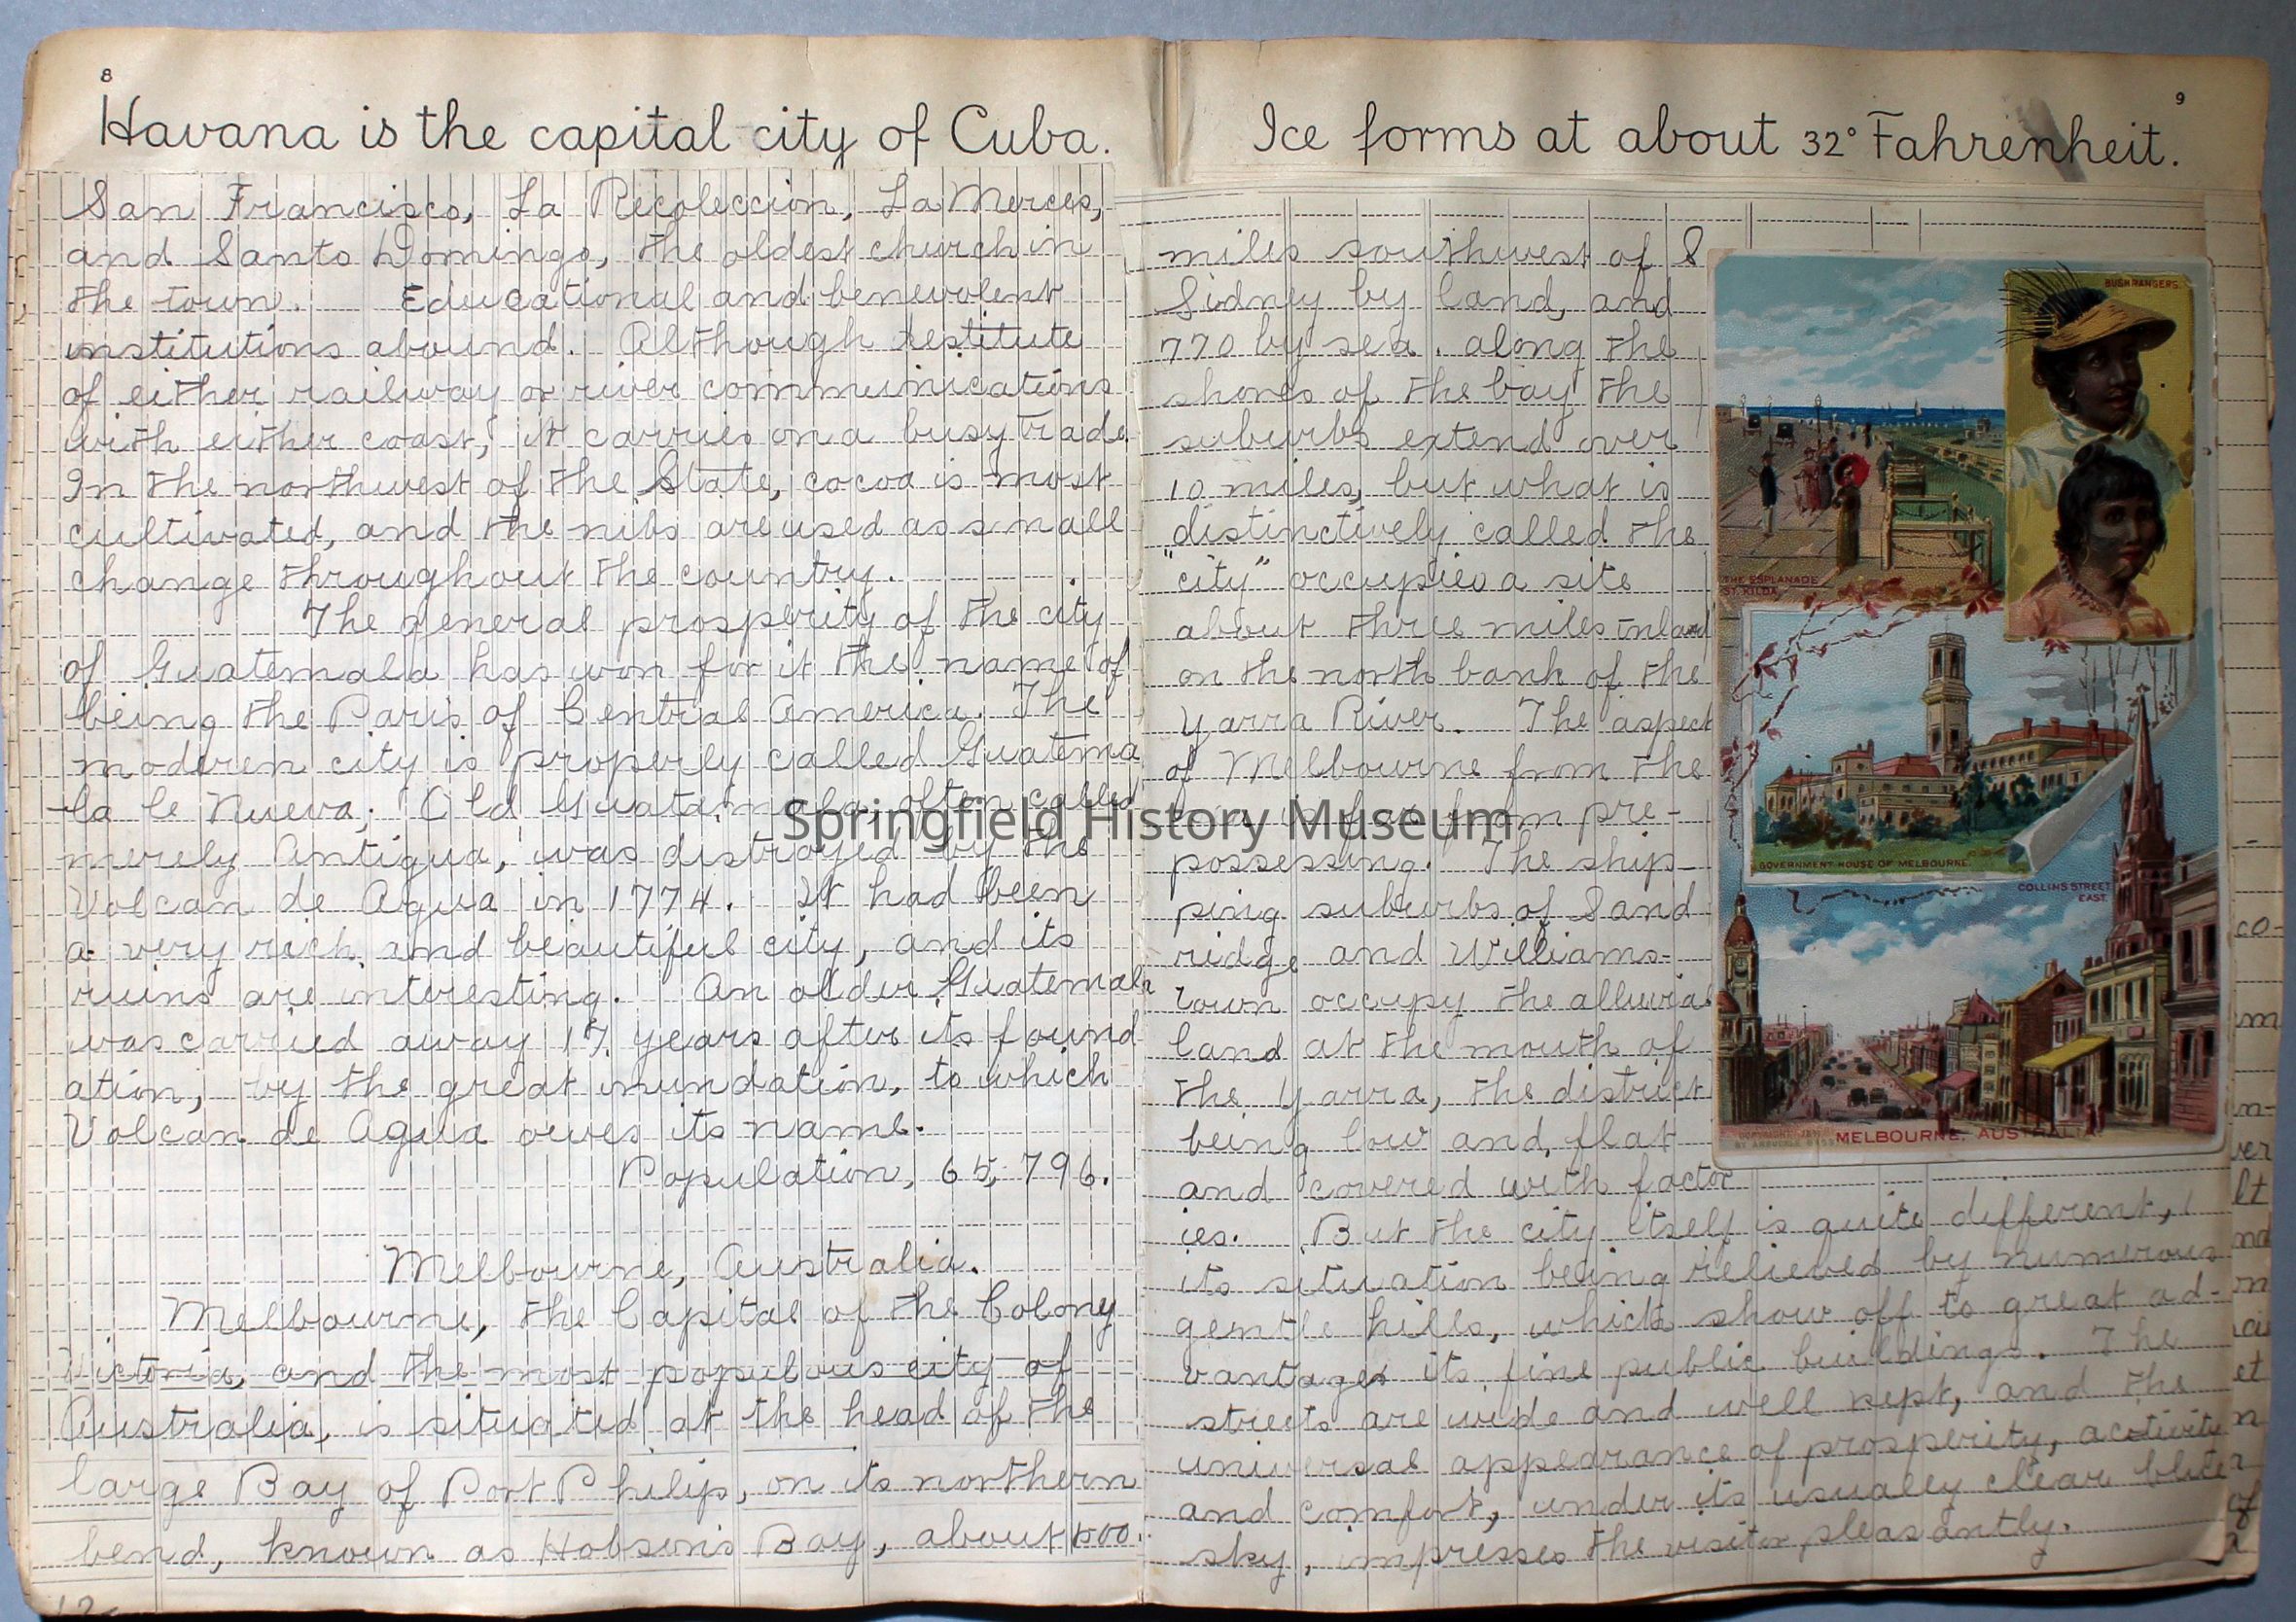 8
Havana is the capital city of Cuba.
San Francisco, La Recoleccion, La Merces,
and Santo Domingo, the oldest church in
the town. Educational and benevolent
institutions abound. Although destitute
of either railway or river communications
with either coast, it carries on a busy trade.
In the northwest of the State, cocoa is most
cultivated, and the nibs are used as small
change throughout the country.
The general prosperity of the city
of Guatemala has won for it the name of
being the Paris of Central America. The
moderen city is properly called Guatema
la le Nueva; Old Guatemala, often called
merely Antigua, was distroyed by the
Volcan de Agua in 1774. It had been
a very rich and beautiful city, and its
ruins are interesting. An older Guatemala
was carried away 17 years after its found
ation, by the great inundation, to which
Volcan de Agua owes its name.
Population, 65,796.
Melbourne, Australia.
Melbourne, the Capital of the Colony
Victoria, and the most populous city of
Australia, is situated at the head of the
large Bay of Port Philip, on its northern
bend, known as Hobson's Bay, about 500.
9
Ice forms at about 32° Fahrenheit.
miles southwest of S
Sidney by land, and
770 by sea. along the
shores of the bay the
suburbs extend over
10 miles, but what is
distinctively called the
"city" occupies a site
about three miles inland
on the north bank of the
Yarra River. The aspect
of Melbourne from the
sea is far from pre-
possessing. The ship-
ping suburbs of Sand
ridge and Williams-
town occupy the alluvial
land at the mouth of
the Yarra, the district
being low and flat
and covered with factor
ies. But the city itself is quite different,
its situation being relieved by numerous
gentle hills, which show off to great ad-
vantages its fine public buildings. The
streets are wide and well kept, and the
universal appearance of prosperity, activity
and comfort, under its usually clear blue
sky, impresses the visitor pleasantly.
BUSHRANGERS.
THE ESPLANADE
ST. KILDA.
GOVERNMENT HOUSE OF MELBOURNE.
COLLINS STREET
EAST.
MELBOURNE, AUSTRALIA.
Springfield History Museum